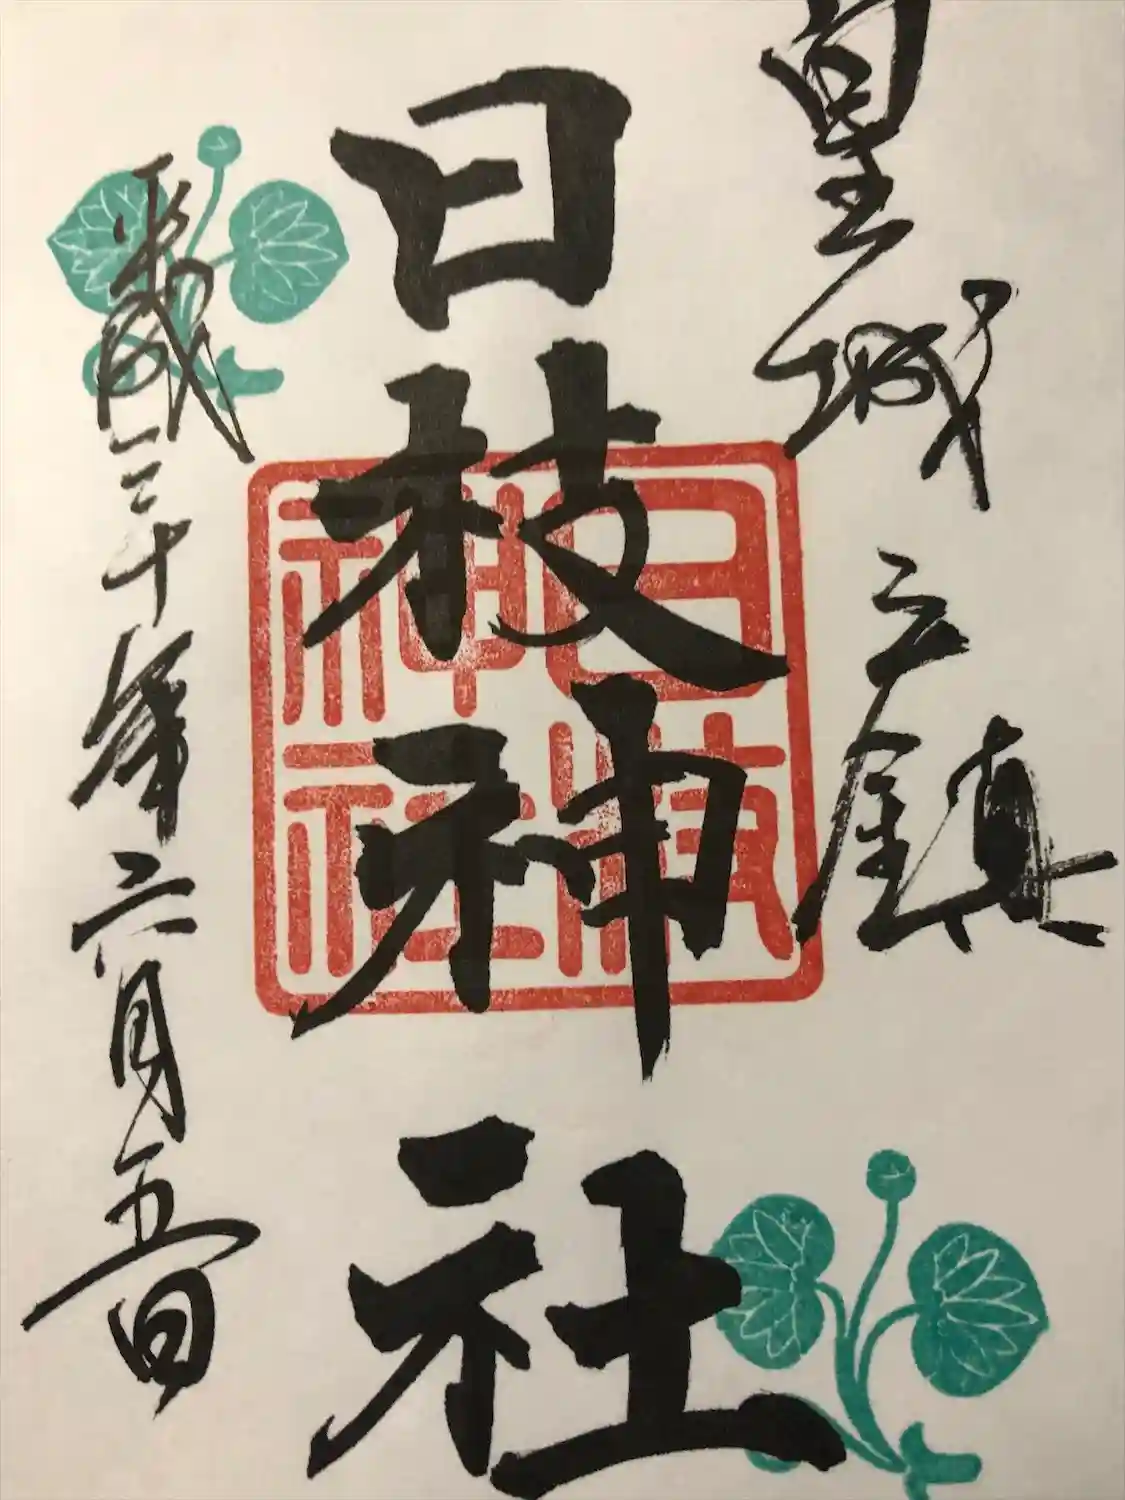 皇城之鎮
日枝神社
日枝神社
平成三十年六月五日